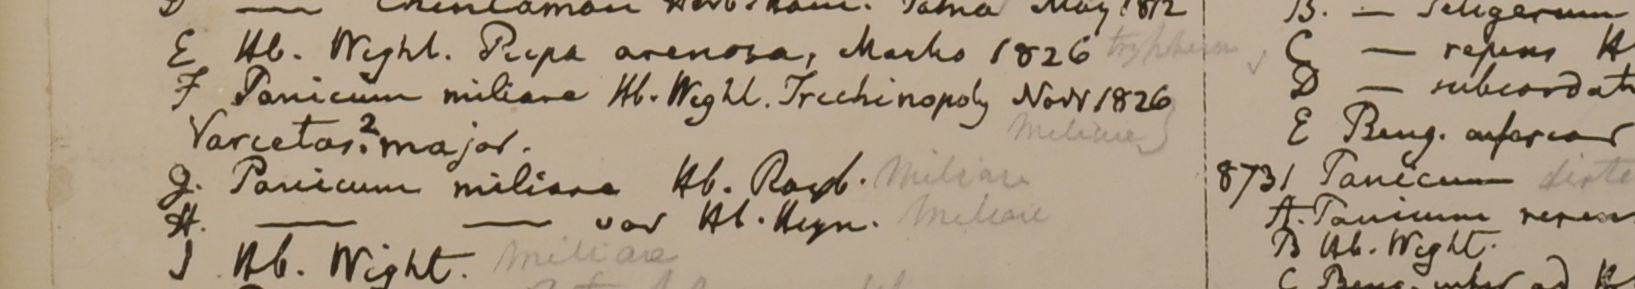 D — Herb. Ham. Patna May 1812
E Hb. Wight. Ripa arenosa, Marks 1826
F Panicum miliare Hb. Wight. Trichinopoly Novr 1826
miliare
Varietas? 2 major.
G. Panicum miliare Hb. Roxb. miliare
H. — — var Hb. Heyn. miliare
I Hb. Wight. miliare
B. — setigerum
C — repens H
D — subcordat
E Beng.
8731 Panicum
A. Panicum repens
B Hb. Wight.
C Beng.